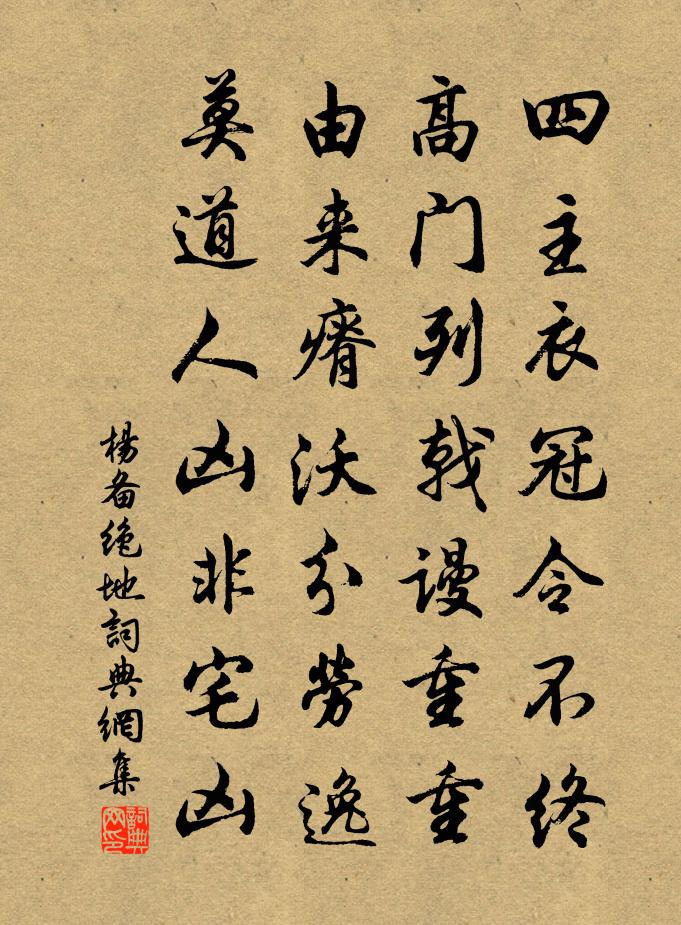 四主衣冠令不终
高门列戟谩重重
由来瘠沃分劳逸
莫道人凶非宅凶
楊备绝地詞典網集
詞典网印